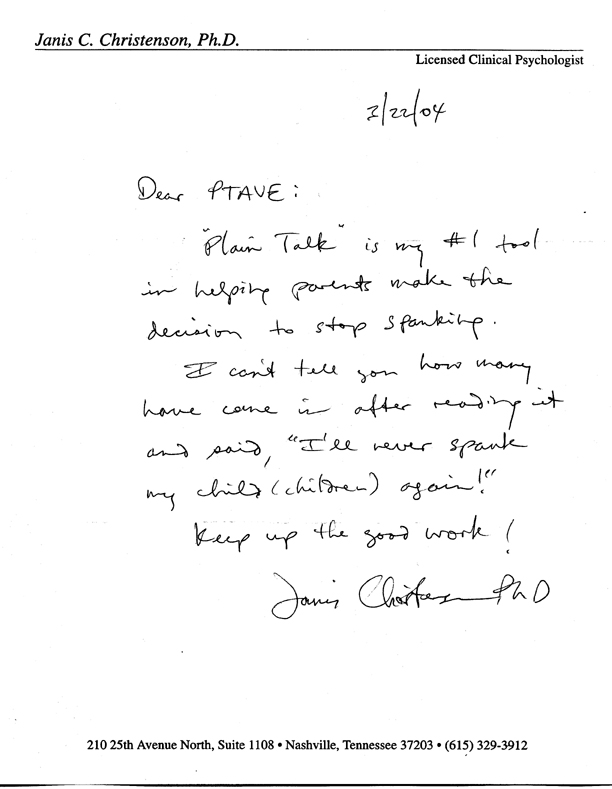 Janis C. Christenson, Ph.D.
Licensed Clinical Psychologist
3/22/04
Dear PTAVE:
"Plain Talk" is my #1 tool
in helping parents make the
decision to stop spanking.
I can't tell you how many
have come in after reading it
and said, "I'll never spank
my child (children) again!"
Keep up the good work!
Janis Christenson PhD
210 25th Avenue North, Suite 1108 • Nashville, Tennessee 37203 • (615) 329-3912